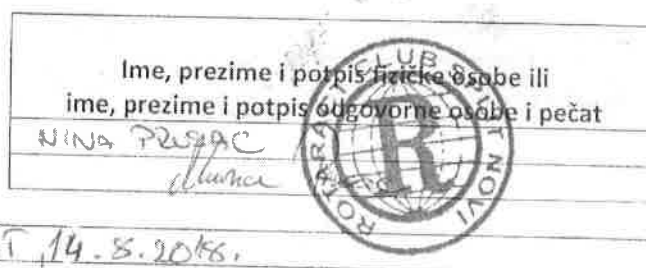 Ime, prezime i potpis fizičke osobe ili
ime, prezime i potpis odgovorne osobe i pečat
NINA
ROTARACT CLUB SPLIT NOVI
R
T, 14.8.2018.